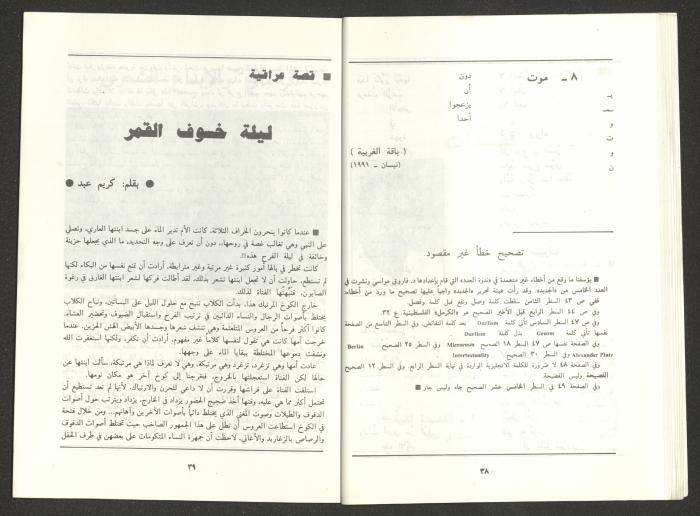 ٨ ـ موت
دون
أن
يزعجوا
أحدا
يـ
ـمـ
و
ت
و
ن
( باقة الغربية )
(نيسان ـ ١٩٩١)
تصحيح خطأ غير مقصود
■ يؤسفنا ما وقع من أخطاء غير متعمدة في «ندوة العدد» التي قام بإعدادها د. فاروق مواسي ونشرت في
العدد الخامس من «الجديد». وقد رأت هيئة تحرير «الجديد» واجباً عليها تصحيح ما ورد من أخطاء.
ففي ص ٤٣ السطر الثامن سقطت كلمة وصل وتقع قبل كلمة وفصل.
وفي ص ٤٤ السطر الرابع قبل الأخير الصحيح هو «الكرمل» الفلسطينية ع ٣٢.
وفي ص ٤٧ السطر السادس تأتي كلمة Durlism بعد كلمة النقائض. وفي السطر التاسع من الصفحة
نفسها تأتي كلمة Genres بدل كلمة Durlism.
وفي الصفحة نفسها ص ٤٧ السطر ١٨ الصحيح Microcosm وفي السطر ٢٥ الصحيح Berlin
Alexander Platz وفي السطر ٣٠ الصحيح Intertextuality
الصفحة ٤٨ لا ضرورة للكلمة الانجليزية الواردة في نهاية السطر الرابع. وفي السطر ١٢ الصحيح
الفصيحة وليس الفضيحة.
وفي الصفحة ٤٩ في السطر الخامس عشر الصحيح جاء وليس جار ■
٣٨
■ قصة عراقية
ليلة خسوف القمر
● بقلم: كريم عبد ●
■ عندما كانوا ينحرون الخراف الثلاثة، كانت الأم تدير الماء على جسد ابنتها العاري، وتصلي
على النبي وهي تغالب غصة في روحها.. دون أن تعرف على وجه التحديد، ما الذي يجعلها حزينة
وخائفة في ليلة الفرح هذه!!.
كانت تخطر في بالها أمور كثيرة غير مرتبة وغير مترابطة. أرادت أن تمنع نفسها من البكاء لكنها
لم تستطع. حاولت أن لا تجعل ابنتها تشعر بذلك. لقد أطالت فركها لشعر ابنتها الغارق في رغوة
الصابون، فنبّهتها الفتاة لذلك.
خارج الكوخ المرتبك هذا، بدأت الكلاب تنبح مع حلول الليل على البساتين. ونباح الكلاب
يختلط بأصوات الرجال والنساء الدائبين في ترتيب الفرح واستقبال الضيوف وتحضير العشاء.
كانوا أكثر فرحاً من العروس المتلعثمة وهي تنشف شعرها وجسدها الأبيض الهش الحزين. عندما
خرجت أمها كانت هي تقول لنفسها كلاماً غير مفهوم. أرادت أن تفكر، ولكنها استغفرت الله
ونشفت دموعها المختلطة ببقايا الماء على وجهها.
عادت أمها وهي تزغرد، تزغرد وهي مرتبكة، وهي لا تعرف لماذا هي مرتبكة. سألت ابنتها عن
حالها لكن الفتاة استعجلتها بالخروج، فخرجتا إلى كوخ آخر هو مكان نومها.
استلقت الفتاة على فراشها وقررت أن لا داعي للحزن والارتباك، لأنها لم تعد تستطيع أن
تحتمل أكثر مما هي عليه. وقتها أخذ ضجيج الحضور يزداد في الخارج، يزداد ويترتب حول أصوات
الدفوف والطبلات وصوت المغني الذي يختلط دائماً بأصوات الآخرين وآهاتهم... ومن خلال فتحة
في الكوخ استطاعت العروس أن تطل على هذا الجمهور الصاخب حيث تختلط أصوات الدفوف
والرصاص بالزغاريد والأغاني. لاحظت أن جمهرة النساء المتكومات على بعضهن في طرف الحفل
٣٩